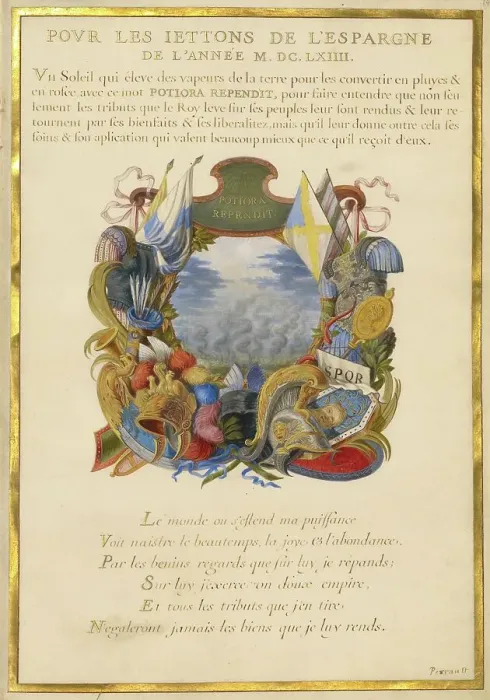 POVR LES IETTONS DE L'ESPARGNE
DE L'ANNÉE M.DC.LXIIII.
Vn Soleil qui éleve des vapeurs de la terre pour les convertir en pluyes &
en rosée avec ce mot POTIORA REPENDIT, pour faire entendre que non seu
lement les tributs que le Roy leve sur ses peuples leur sont rendus & leur re-
tournent par ses bienfaits & ses liberalitez, mais qu'il leur donne outre cela ses
soins & son aplication qui valent beaucoup mieux que ce qu'il reçoit d'eux.
POTIORA
REPENDIT
SPQR
Le monde ou s'estend ma puissance
Voit naistre le beautemps, la joye & l'abondance.
Par les benins regards que sur luy je répands;
Sur luy j'exerce un doux empire,
Et tous les tributs que j'en tire
N'égaleront jamais les biens que je luy rends.
Perrault